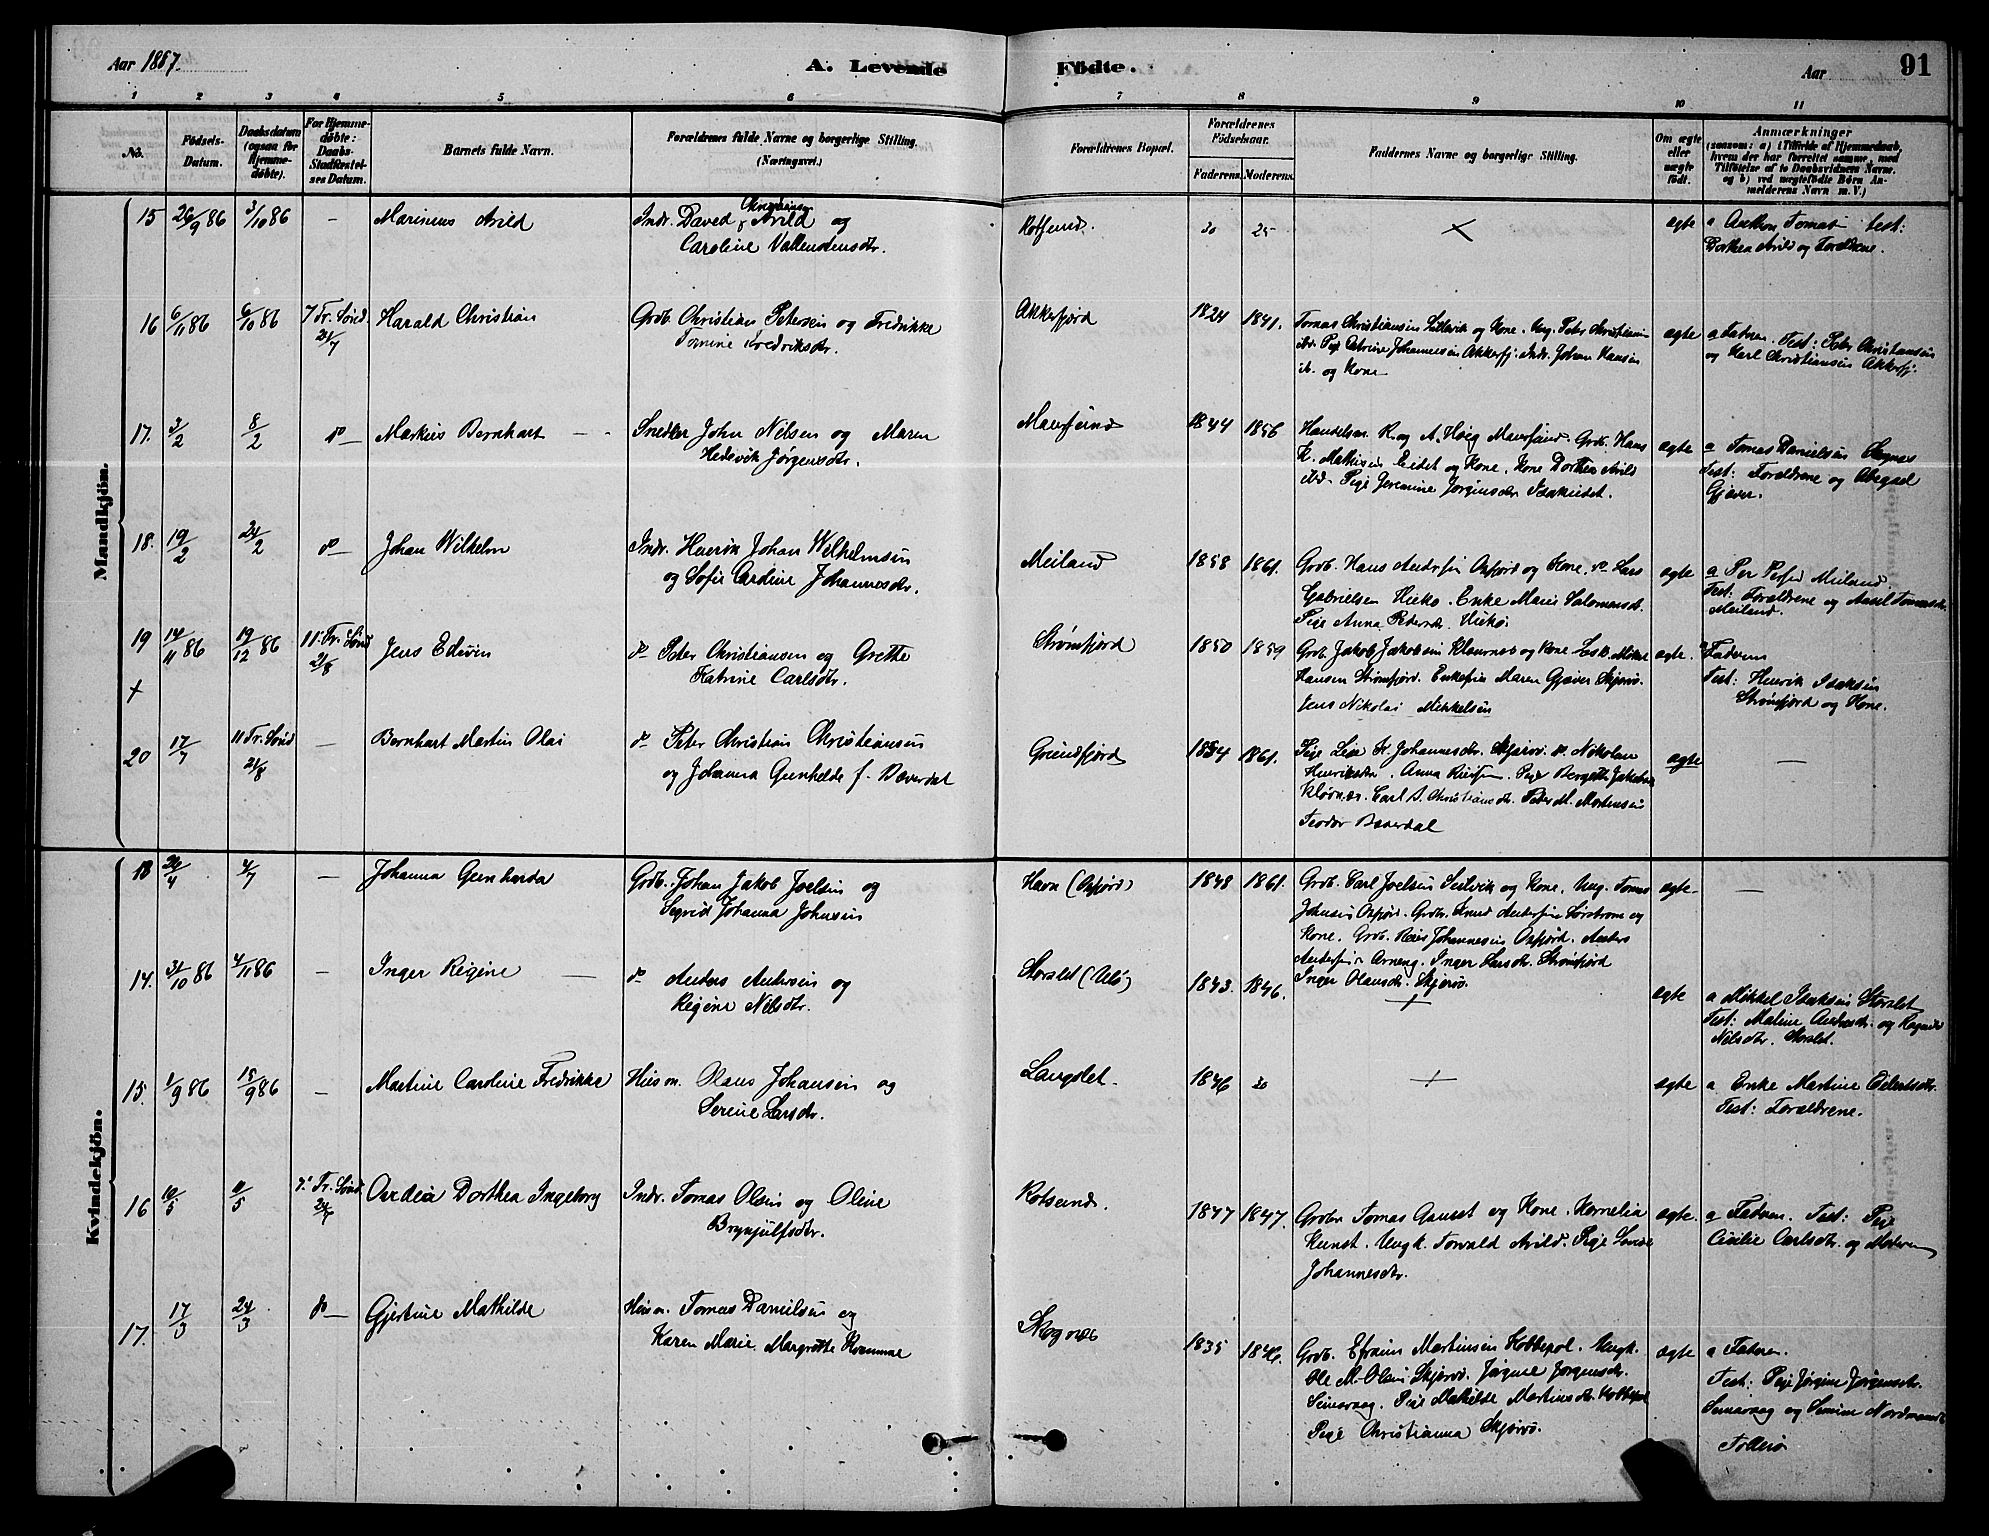 Aar 1887.
A. Levende Födte.
Aar
91
1 2 3 4 5 6 7 8 9 10 11
No.
Födsels-
Datum.
Daabsdatum
(ogsaa for
Hjemme-
döbte).
For Hjemme-
döbte:
Daabs-
Stadfæstel-
ses Datum.
Barnets fulde Navn.
Forældrenes fulde Navne og borgerlige Stilling.
(Næringsvei.)
Forældrenes Bopæl.
Forældrenes
Födselsaar.
Faderens. Moderens.
Faddernes Navne og borgerlige Stilling.
Om ægte
eller
uægte
födt.
Anmærkninger
(saasom: a) i Tilfælde af Hjemmedaab,
hvem der har forrettet samme, med
Tilföielse af to Daabsvidners Navne.
og b) ved uægtefödte Börn An-
melderens Navn m. V.)
Mandkjön.
15 26/9 86 3/10 86 — Marinus Avild
Indr. Daved Avild og
Caroline
Rotsund.
30 25
×
ægte
a Anthon Tomas test:
Dorthea Avild og Forældrene.
16 6/11 86 6/10 86 7 Tr. Sønd. 24/7 Harald Christian
Grdb. Christian Petersen og Fredrikke
Tomine Fredriksdtr.
Akkerfjord
1824 1841.
Tomas Christiansen og Kone. Ung. Peter Christiansen
ibd. Pige Catrine Johannesen Akkerfj. Indr. Johan Hansen
ib. og Kone
ægte
a Fadren. Test: Peter Christiansen
og Karl Christiansen Akkerfj.
17. 3/2 8/2 do — Markus Bernhart —
Snedker John Nilsen og Maren
Hedevik Jørgensdtr.
Maursund
1844 1856
Handelsm. R. og A. Høeg Maursund. Grdb. Hans
K. Mathisen Eidet og Kone. Kone Dorthea Avild
ibd. Pige Jeremine Jørgensdtr. Isakeidet.
ægte
a Tomas Danielsen Skognæs
Test: Forældrene og Abegael
Gjæver.
18. 19/2 24/2 do — Johan Wilhelm
Indr. Henrik Johan Wilhelmsen
og Sofie Caroline Johannesdtr.
Meiland
1858 1861.
Grdb. Hans Andersen Oxfjord og Kone. do Lars
Gabrielsen Hiekø. Enke Maris Salomonsdt.
Pige Anna Pedersdtr. Hiekø.
ægte
a Per Persen Meiland.
Test: Forældrene og Axsel Tomassdtr.
Meiland.
19 14/11 86 19/12 86 11. Tr. Sønd 21/8 Jens Edvin
+
do Peter Christiansen og Grethe
Katrine Carlsdtr.
Strømfjord
1850 1859
Grdb. Jakob Jakobsen Klournes og Kone
Hansen Strømfjord. Enkefru Maren Gjæver Skjervø.
Jens Nikolai Mikkelsen
ægte.
a Fadren
Test: Henrik Isaksen
Strømfjord og Kone.
20 17/7 11 Tr. Sønd 21/8 — Bernhart Martin Olai
do Peter Christian Christiansen
og Johanna Gunhilde f. Bæverdal
Grundfjord
1854 1861.
Pige Lise Johannesdtr. Skjervø. do Nikoline
Henriksdtr. Anna. Pige Bergitte Jakobs
Klovnæs. Carl A. Christiansdtr. Peder M. Mortensen
Teodor Bæverdal
ægte
—
Kvindekjön.
13 26/4 4/7 — Johanna Gunharda
Grdb. Johan Jakob Joelsen og
Segrid Johanna Johnsen
Havn (Oxfjord)
1848 1861.
Grdb. Carl Joelsen og Kone. Ung. Tomas
Johnsen Oxfjord. Grdb. Knud Andersen Sørstrøm og
Kone. Grdb. Johannesen Oxfjord. Anders
Andersen Arneng. Inger Larsdtr. Strømfjord
Inger Olausdt. Skjervø.
ægte
—
14. 31/10 86 4/11 86 — Inger Regine —
do Anders Andersen og
Regine Nilsdtr.
Storslet (Ulø)
1843. 1846.
+
ægte
a Mikkel Isaksen Storslet
Test: Maline Andersdtr. og Ragna
Nilsdtr. Storslet.
15. 1/9 86 15/9 86 — Martine Caroline Fredrikke
Huusm. Olaus Johansen og
Serine Larsdtr.
Langslet.
1846 30
+
ægte
a Enke Martine Eilertsdtr.
Test: Forældrene.
16 10/5 11/5 7. Tr. Sønd. Dorthea Ingeborg
Indr. Tomas Olsen og Oline
Brynjulfsdtr.
Rotsund.
1847 1847.
Grdbr Tomas Gamst og Kone. Kornelia
Kunst. Ungk. Torvald Avild. Pige Lovise
Johannesdtr.
ægte.
a Fadren. Test: Pige
Cicilie Carlsdtr. og Moderen
17. 17/3 24/3 do — Gjertine Mathilde
Huusm. Tomas Danielsen og
Karen Marie Margrethe Kvamme
Skognæs
1835 1846.
Grdb. Efraim Martinsen Kobbepol. Ungk.
Ole M. Olsen Skjervø. Jørgine Jørgensdtr.
Simavaag. Pige Mathilde Martinsdtr. Kobbepol
Pige Christianna Skjervø.
ægte
a Fadren.
Test: Pige Jørgine Jørgensdtr.
Simavaag og Simon Nordmand
Follesø